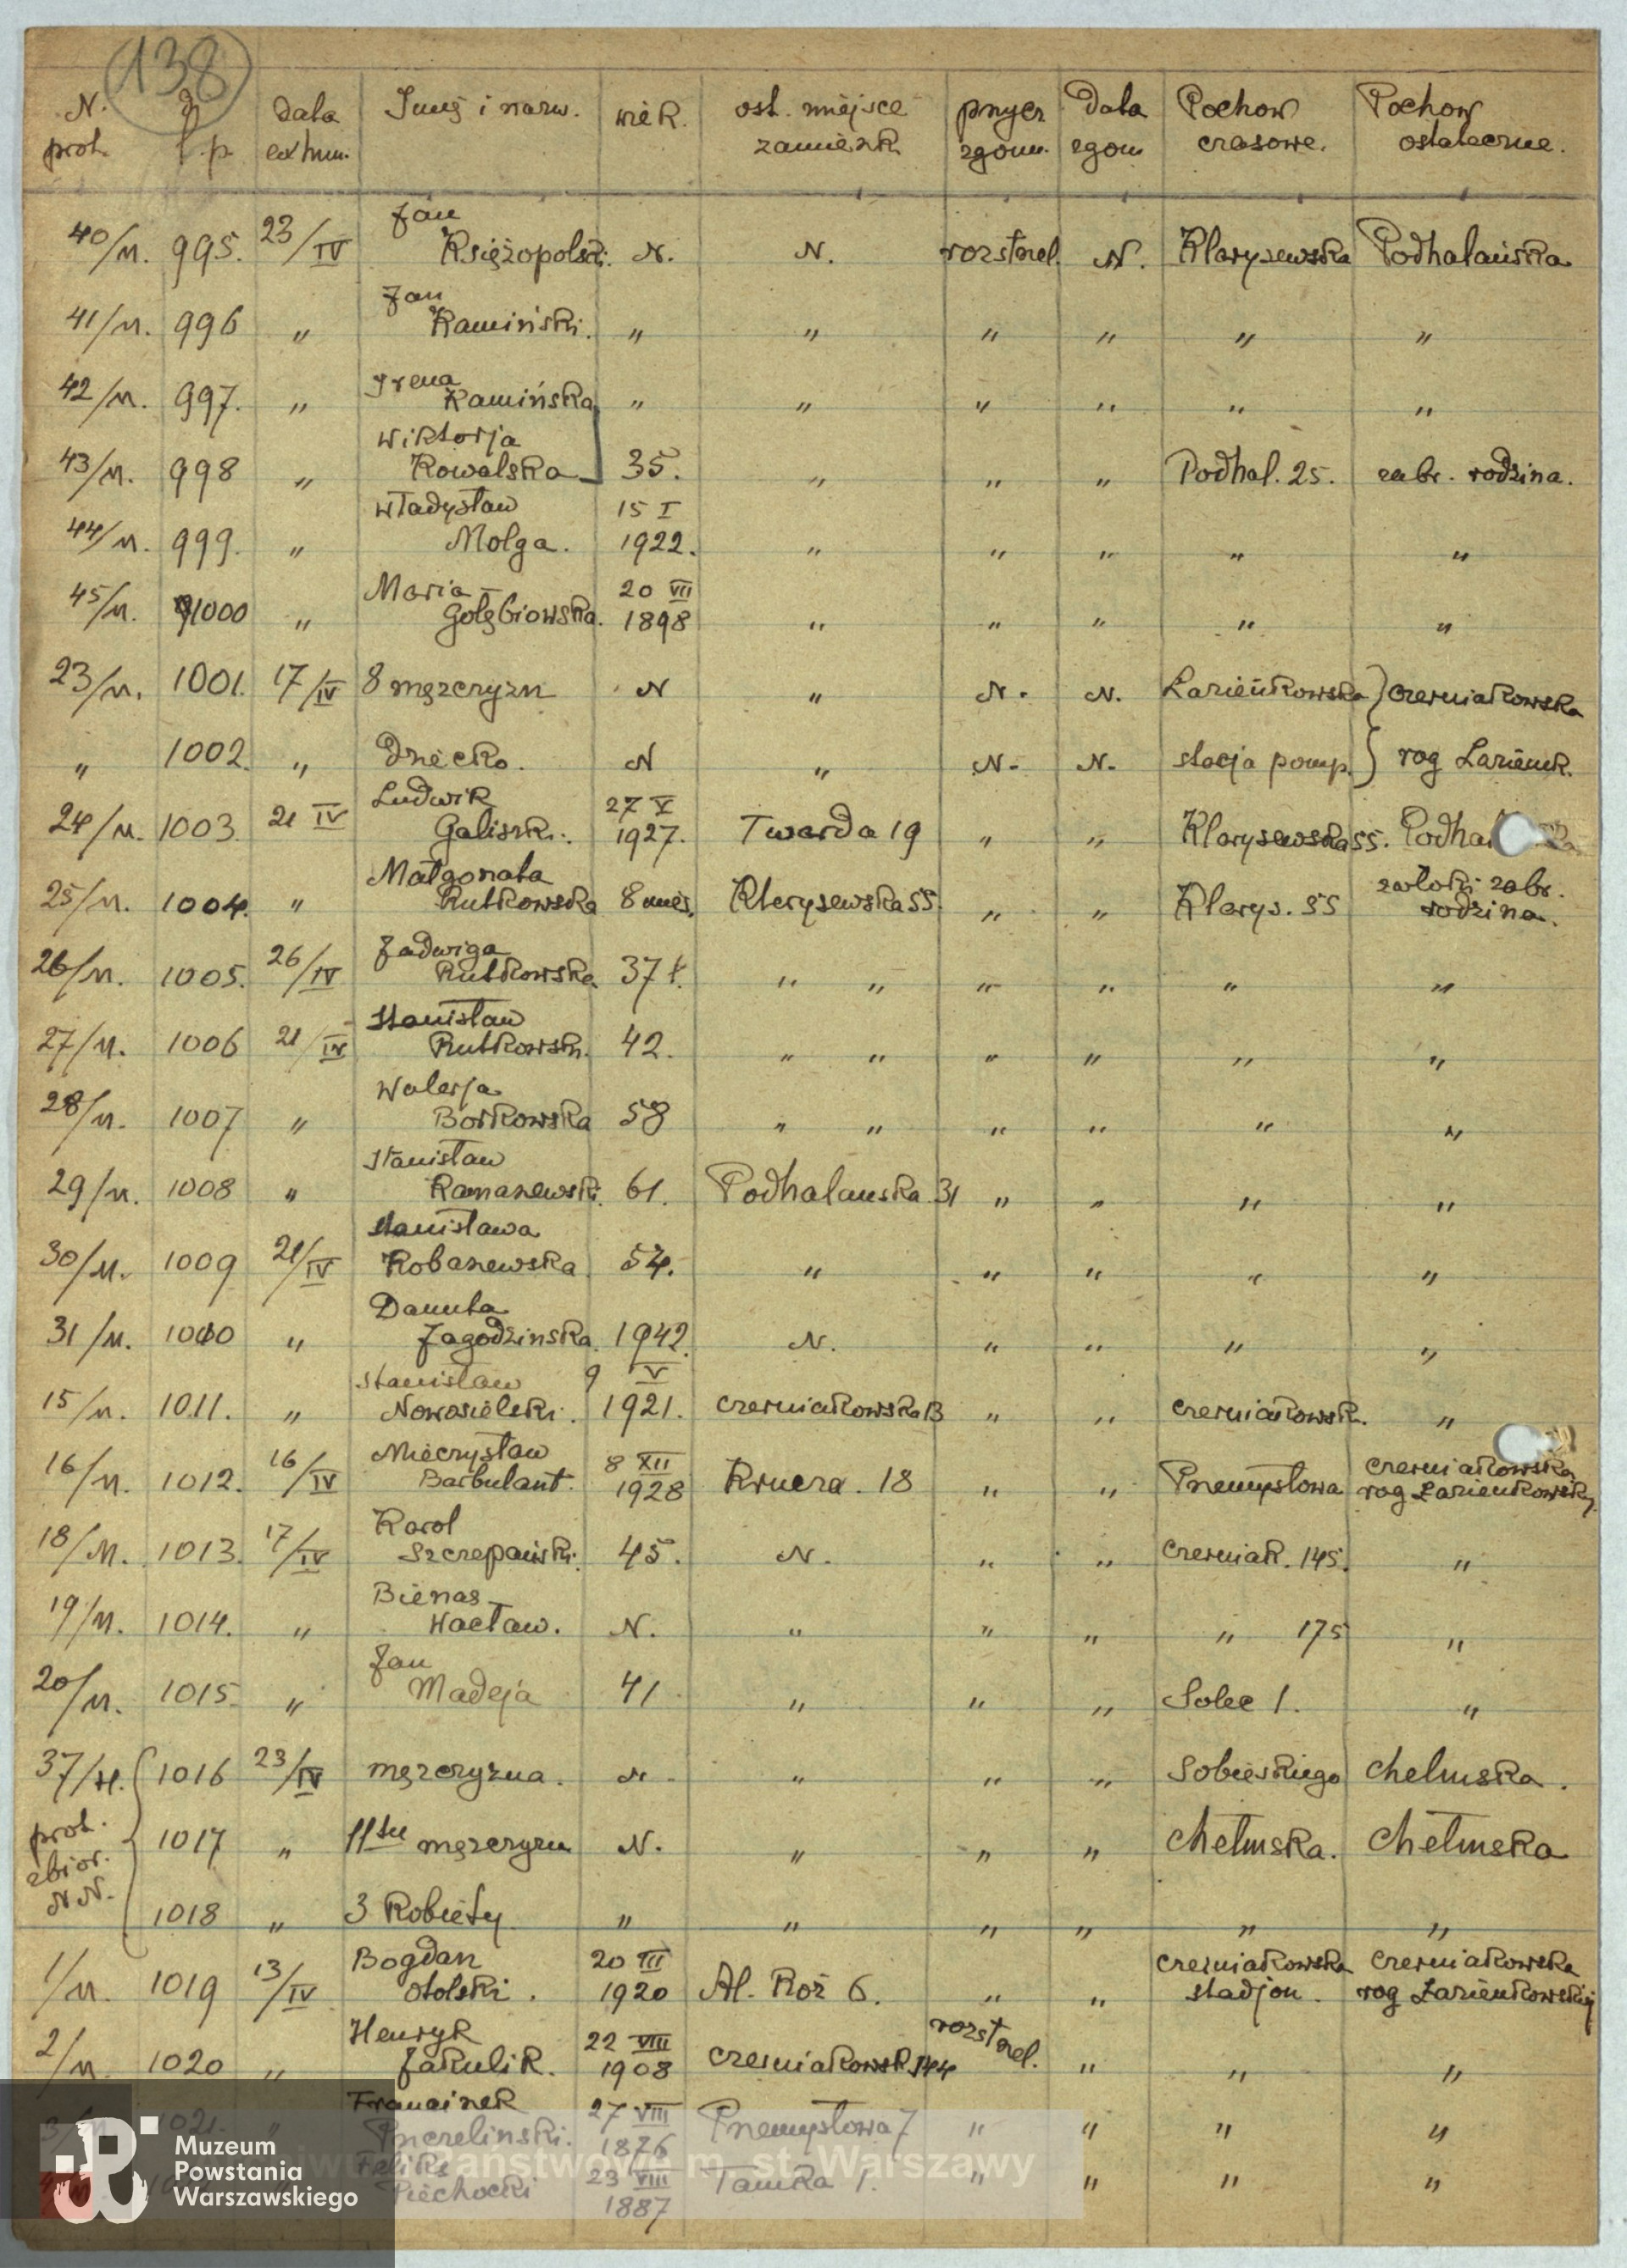 138
N. prot. l.p. data exhum. Imię i nazw. wiek. ost. miejsce zamieszk. przycz zgonu. Data zgon Pochow czasowe. Pochow ostateczne.
40/M. 995. 23/IV Jan Księżopolski. N. N. rozstrzel. N. Klarysewska Podhalańska
41/M. 996 " Jan Kamiński. " " " " " "
42/M. 997. " Irena Kamińska " " " " " "
43/M. 998 " Wiktorja Kowalska 35. " " " Podhal. 25. zabr. rodzina.
44/M. 999. " Władysław Molga. 15 I 1922. " " " " "
45/M. 1000 " Maria Gołębiowska. 20 VII 1898 " " " " "
23/M. 1001. 17/IV 8 mężczyzn N " N. N. Łazieńkowska } Czerniakowska
" 1002. " Dziecko. N " N. N. stacja pomp. } rog Łazienk.
24/M. 1003. 21 IV Ludwik Galiszki. 27 V 1927. Twarda 19 " " Klarysewska 55. Podhal
25/M. 1004. " Małgorzata Rutkowska 8 mies. Klarysewska 55. " " Klarys. 55 zwłoki zabr. rodzina.
26/M. 1005. 26/IV Jadwiga Rutkowska 37 ł. " " " " " "
27/M. 1006 21/IV Stanisław Rutkowski. 42. " " " " " "
28/M. 1007 " Walerja Borkowska 58 " " " " " "
29/M. 1008 " Stanisław 61. Podhalanska 31 " " " "
30/M. 1009 21/IV Stanisława Kobaszewska 54. " " " " "
31/M. 1010 " Danuta Jagodzinska. 1942. N. " " " "
15/M. 1011. " Stanisław Nowosielski. 9 V 1921. Czerniakowska 13 " " Czerniakowsk. "
16/M. 1012. 16/IV Mieczysław Barbulant. 8 XII 1928 Krucza. 18 " " Przemysłowa Czerniakowska rog Łazienkowskiej
18/M. 1013. 17/IV Karol Szczepański. 45. N. " " Czerniak. 145. "
19/M. 1014. " Bienas Wacław. N. " " " " 175 "
20/M. 1015. " Jan Madeja 41 " " " Solec 1. "
37/M. { 1016 23/IV mężczyzna. N " " " Sobieskiego Chełmska.
prot. zbior. N N. 1017 " 11tu mężczyzn N. " " " Chełmska. Chełmska
1018 " 3 Kobiety " " " " " "
1/M. 1019 13/IV Bogdan Otolski. 20 III 1920 Al. Róż 6. " " Czerniakowska stadjon. Czerniakowska rog Łazieńkowskiej
2/M. 1020 " Henryk Jakulik. 22 VIII 1908 Czerniakowsk. 144 rozstrzel. " " "
3/M. 1021. " Franciszek 27 VIII 1876 Przemysłowa 7 " " " "
Feliks Piechocki 23 VIII 1887 Tamka 1. " " " "
Muzeum
Powstania
Warszawskiego
Państwowe m. st. Warszawy